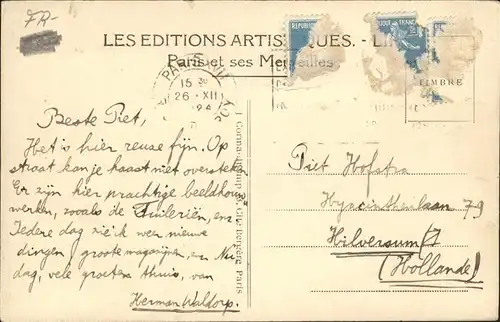 FR-
LES EDITIONS ARTISTIQUES. - L
Paris et ses Merveilles
REPUBLIQ
QUE FRANC
TIMBRE
PARIS
15
26 - XII
Beste Piet,
Het is hier reuse fijn. Op
straat kan je haast niet oversteken
Er zijn hier prachtige beeldhouw-
werken, zooals de Tuileriën, enz
Iedere dag zie ik weer nieuwe
dingen, groote magazijnen, en Nu
dag, vele groeten thuis, van
Herman Waldorp.
Cité Bergère, Paris
Piet Hofstra
Hyacinthenlaan 79
Hilversum
(Hollande)